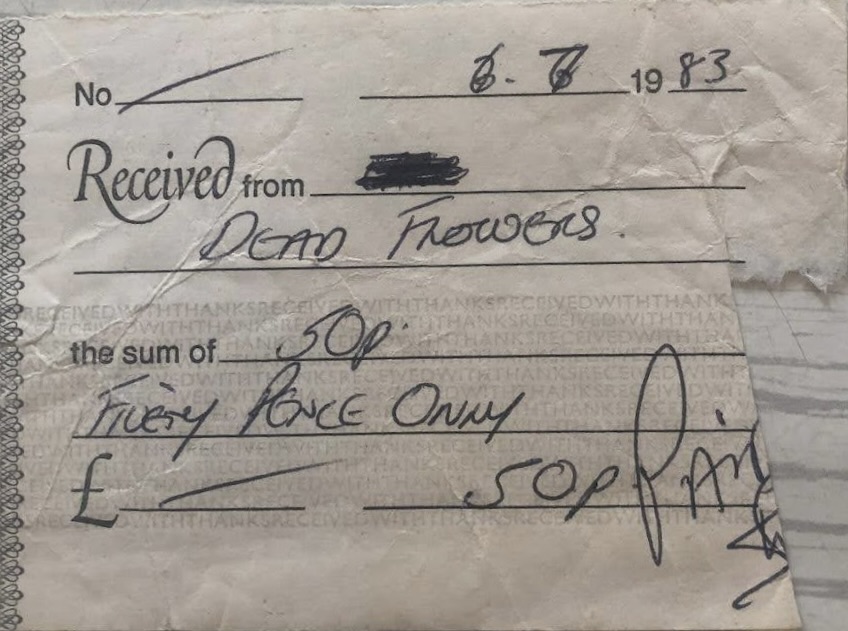 No 6. 7 19 83
Received from
DEAD FLOWERS.
RECEIVEDWITHTHANKSRECEIVEDWITHTHANKSRECEIVEDWITHTHANK
the sum of 50p.
FIVETY PENCE ONLY
£ 50p PAID